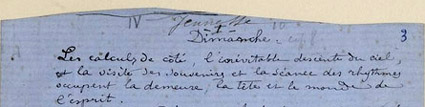 IV Jeunesse IV
I
Dimanche 3
Les calculs de côté, l'inévitable descente du ciel,
et la visite des souvenirs et la séance des rhythmes
occupent la demeure, la tête et le monde de
l'esprit.